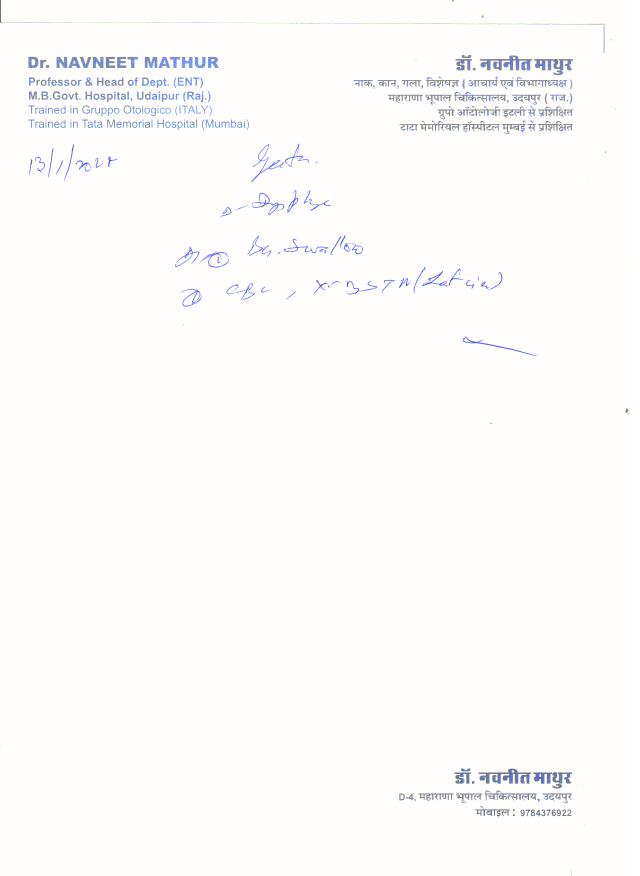 Dr. NAVNEET MATHUR
Professor & Head of Dept. (ENT)
M.B.Govt. Hospital, Udaipur (Raj.)
Trained in Gruppo Otologico (ITALY)
Trained in Tata Memorial Hospital (Mumbai)
डॉ. नवनीत माथुर
नाक, कान, गला, विशेषज्ञ ( आचार्य एवं विभागाध्यक्ष )
महाराणा भूपाल चिकित्सालय, उदयपुर ( राज.)
ग्रुपो ऑटोलोजी इटली से प्रशिक्षित
टाटा मेमोरियल हॉस्पीटल मुम्बई से प्रशिक्षित
13/1/
Geeta.
① Ba. Swallow
② CBC, X-ray STN (Lat view)
डॉ. नवनीत माथुर
D-4, महाराणा भूपाल चिकित्सालय, उदयपुर
मोबाइल : 9784376922